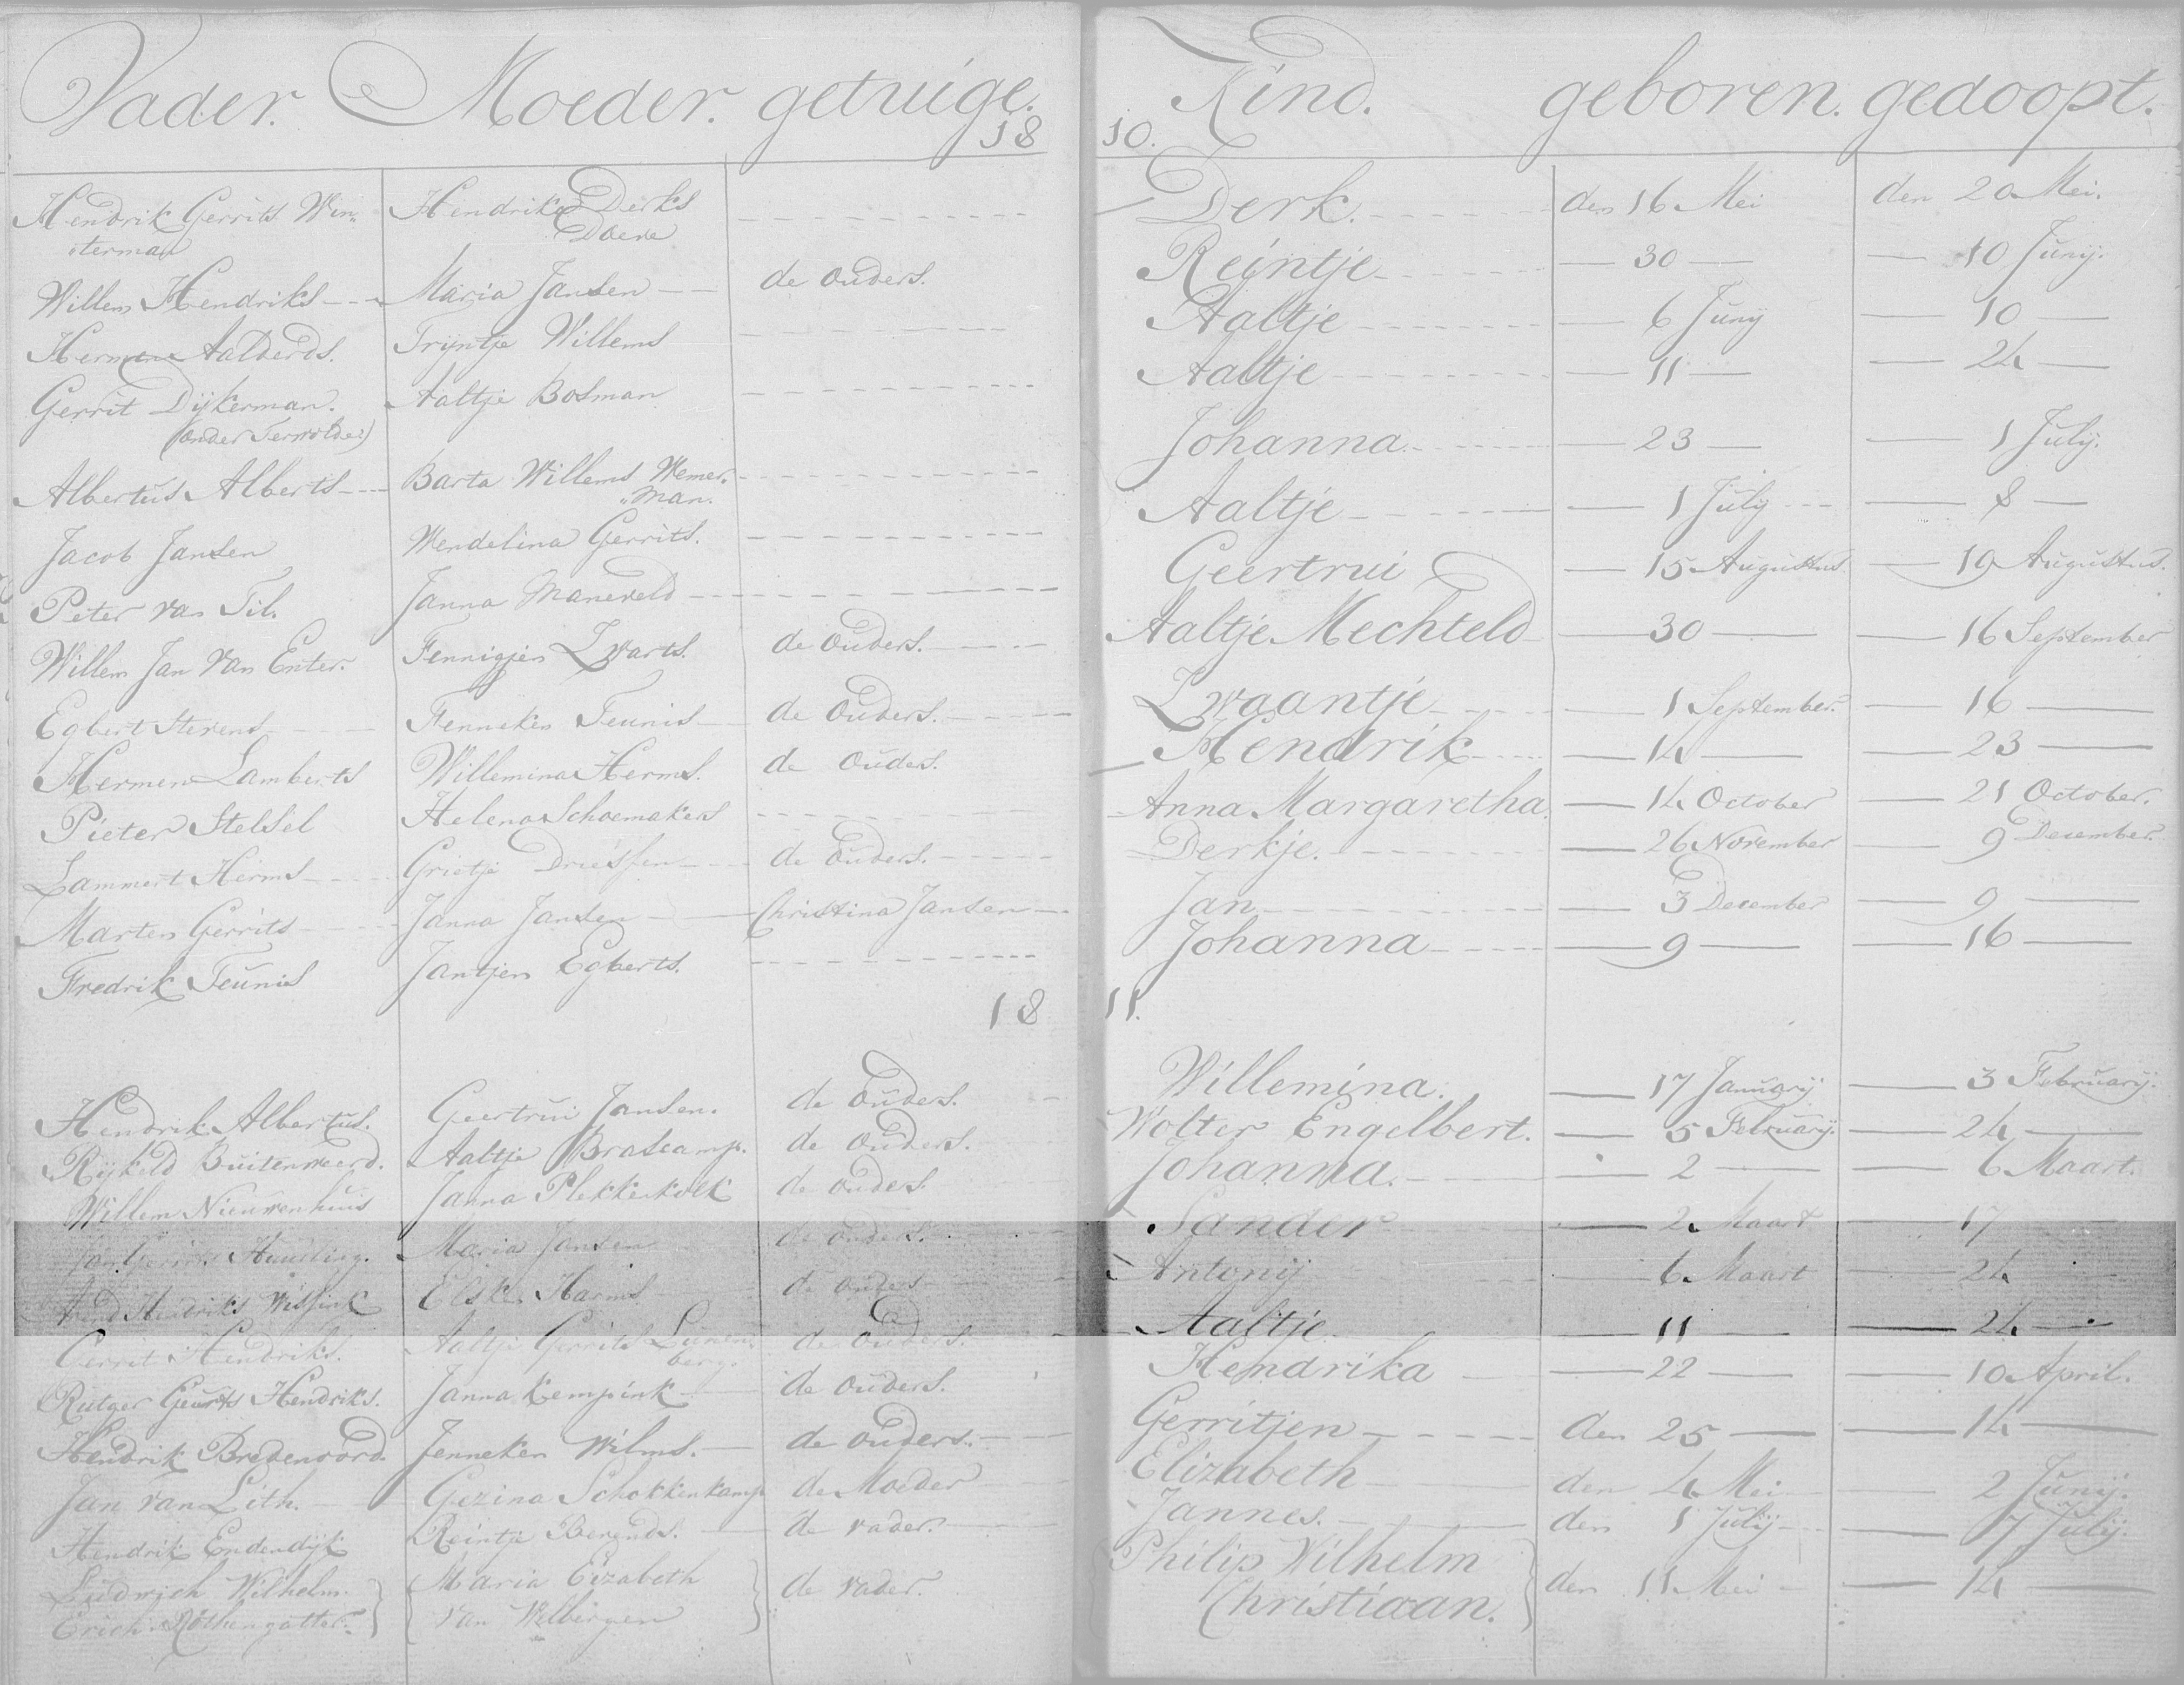 Vader. Moeder. getuige. Kind. geboren. gedoopt.
18 10.
Hendrik Gerrits Win- Hendrika Derks Derk. den 16 Mei den 20 Mei.
sterman Doeve
Willem Hendriks Maria Jansen de ouders. Reintje 30 10 Junij.
Hermen Aalderds. Trijntje Willems Aaltje 6 Junij 10
Gerrit Dijkerman. Aaltje Bosman Aaltje 11 24
(onder Terwolde)
Albertus Alberts Barta Willems Wemer- Johanna 23 1 July.
"man.
Jacob Jansen Wendelina Gerrits. Aaltje 1 July 8
Peter van Til. Janna Maneveld Geertrui 15 Augustus 19 Augustus.
Willem Jan van Enter. Fennigjen Zwarts. de ouders. Aaltje Mechteld 30 16 September
Egbert Stevens Fenneken Teunis de ouders. Zwaantje 1 September. 16
Hermen Lamberts Willemina Herms. de ouders. Hendrik 14 23
Pieter Stelsel Helena Schoemakers Anna Margaretha. 14 October 21 October.
Lammert Herms Grietje Driessen de ouders. Derkje. 26 November 9 December.
Marten Gerrits Janna Jansen Christina Jansen Jan 3 December 9
Fredrik Teunis Jantjen Egberts. Johanna 9 16
18 11.
Hendrik Albertus. Geertrui Jansen. de ouders. Willemina. 17 Januarij 3 Februarij.
Rijkeld Buitenweerd. Aaltje Brascamp. de ouders. Wolter Engelbert. 5 Februarij. 24
Willem Nieuwenhuis Janna Plekkenkolk de ouders. Johanna. 2 6 Maart.
Jan Maria Jansen de ouders. Sander 2 Maart 17
Hendriks Wissink Elske Harms de ouders Antonij 6 Maart 24
Gerrit Hendriks. Aaltje Gerrits Lunen- de ouders. Aaltje 11 24
berg.
Rutger Geurts Hendriks. Janna Kempink de ouders. Hendrika 22 10 April.
Hendrik Bredenoord. Jenneken Wilms. de ouders. Gerritjen den 25 14
Jan van Lith. Gezina Schokkenkamp de Moeder Elizabeth den 4 Mei 2 Junij.
Hendrik Endendijk Reintje Berends. de vader. Jannes. den 1 Julij 7 Julij.
Ludwich Wilhelm Maria Elizabeth de vader. Philip Wilhelm den 11 Mei 14
Erich Röthengatter. van Welbergen Christiaan.